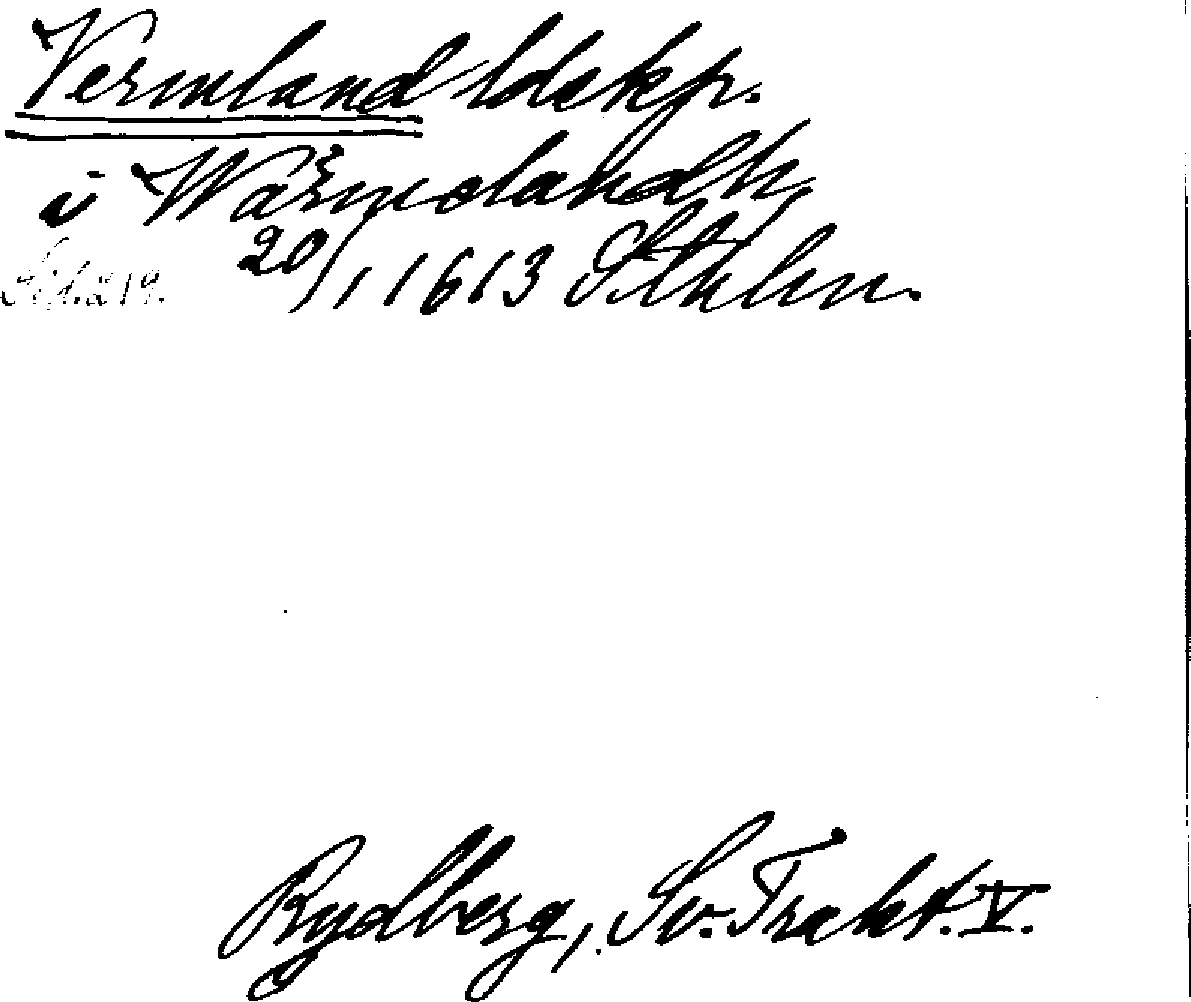 Vermland ldskp.
i Wärmelandh
Sid. 219. 20/1 1613 Sthlm.
Rydberg, Sv. Trakt. V.